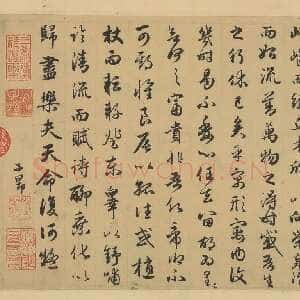 而始流羨萬物之得時感吾生
之行休已矣乎寓形宇內復
幾時曷不委心任去留胡為
何之富貴非吾願帝鄉不
可期懷良辰以孤往或植
杖而耘耔登東皋以舒嘯
臨清流而賦詩聊乘化以
歸盡樂夫天命復奚疑
子昂